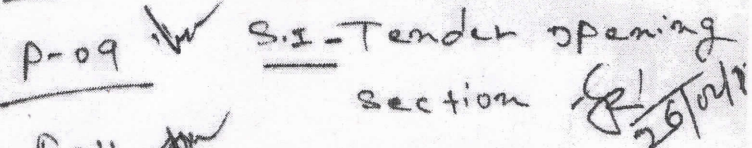 P-09 S.I-Tender opening
section 26/02/